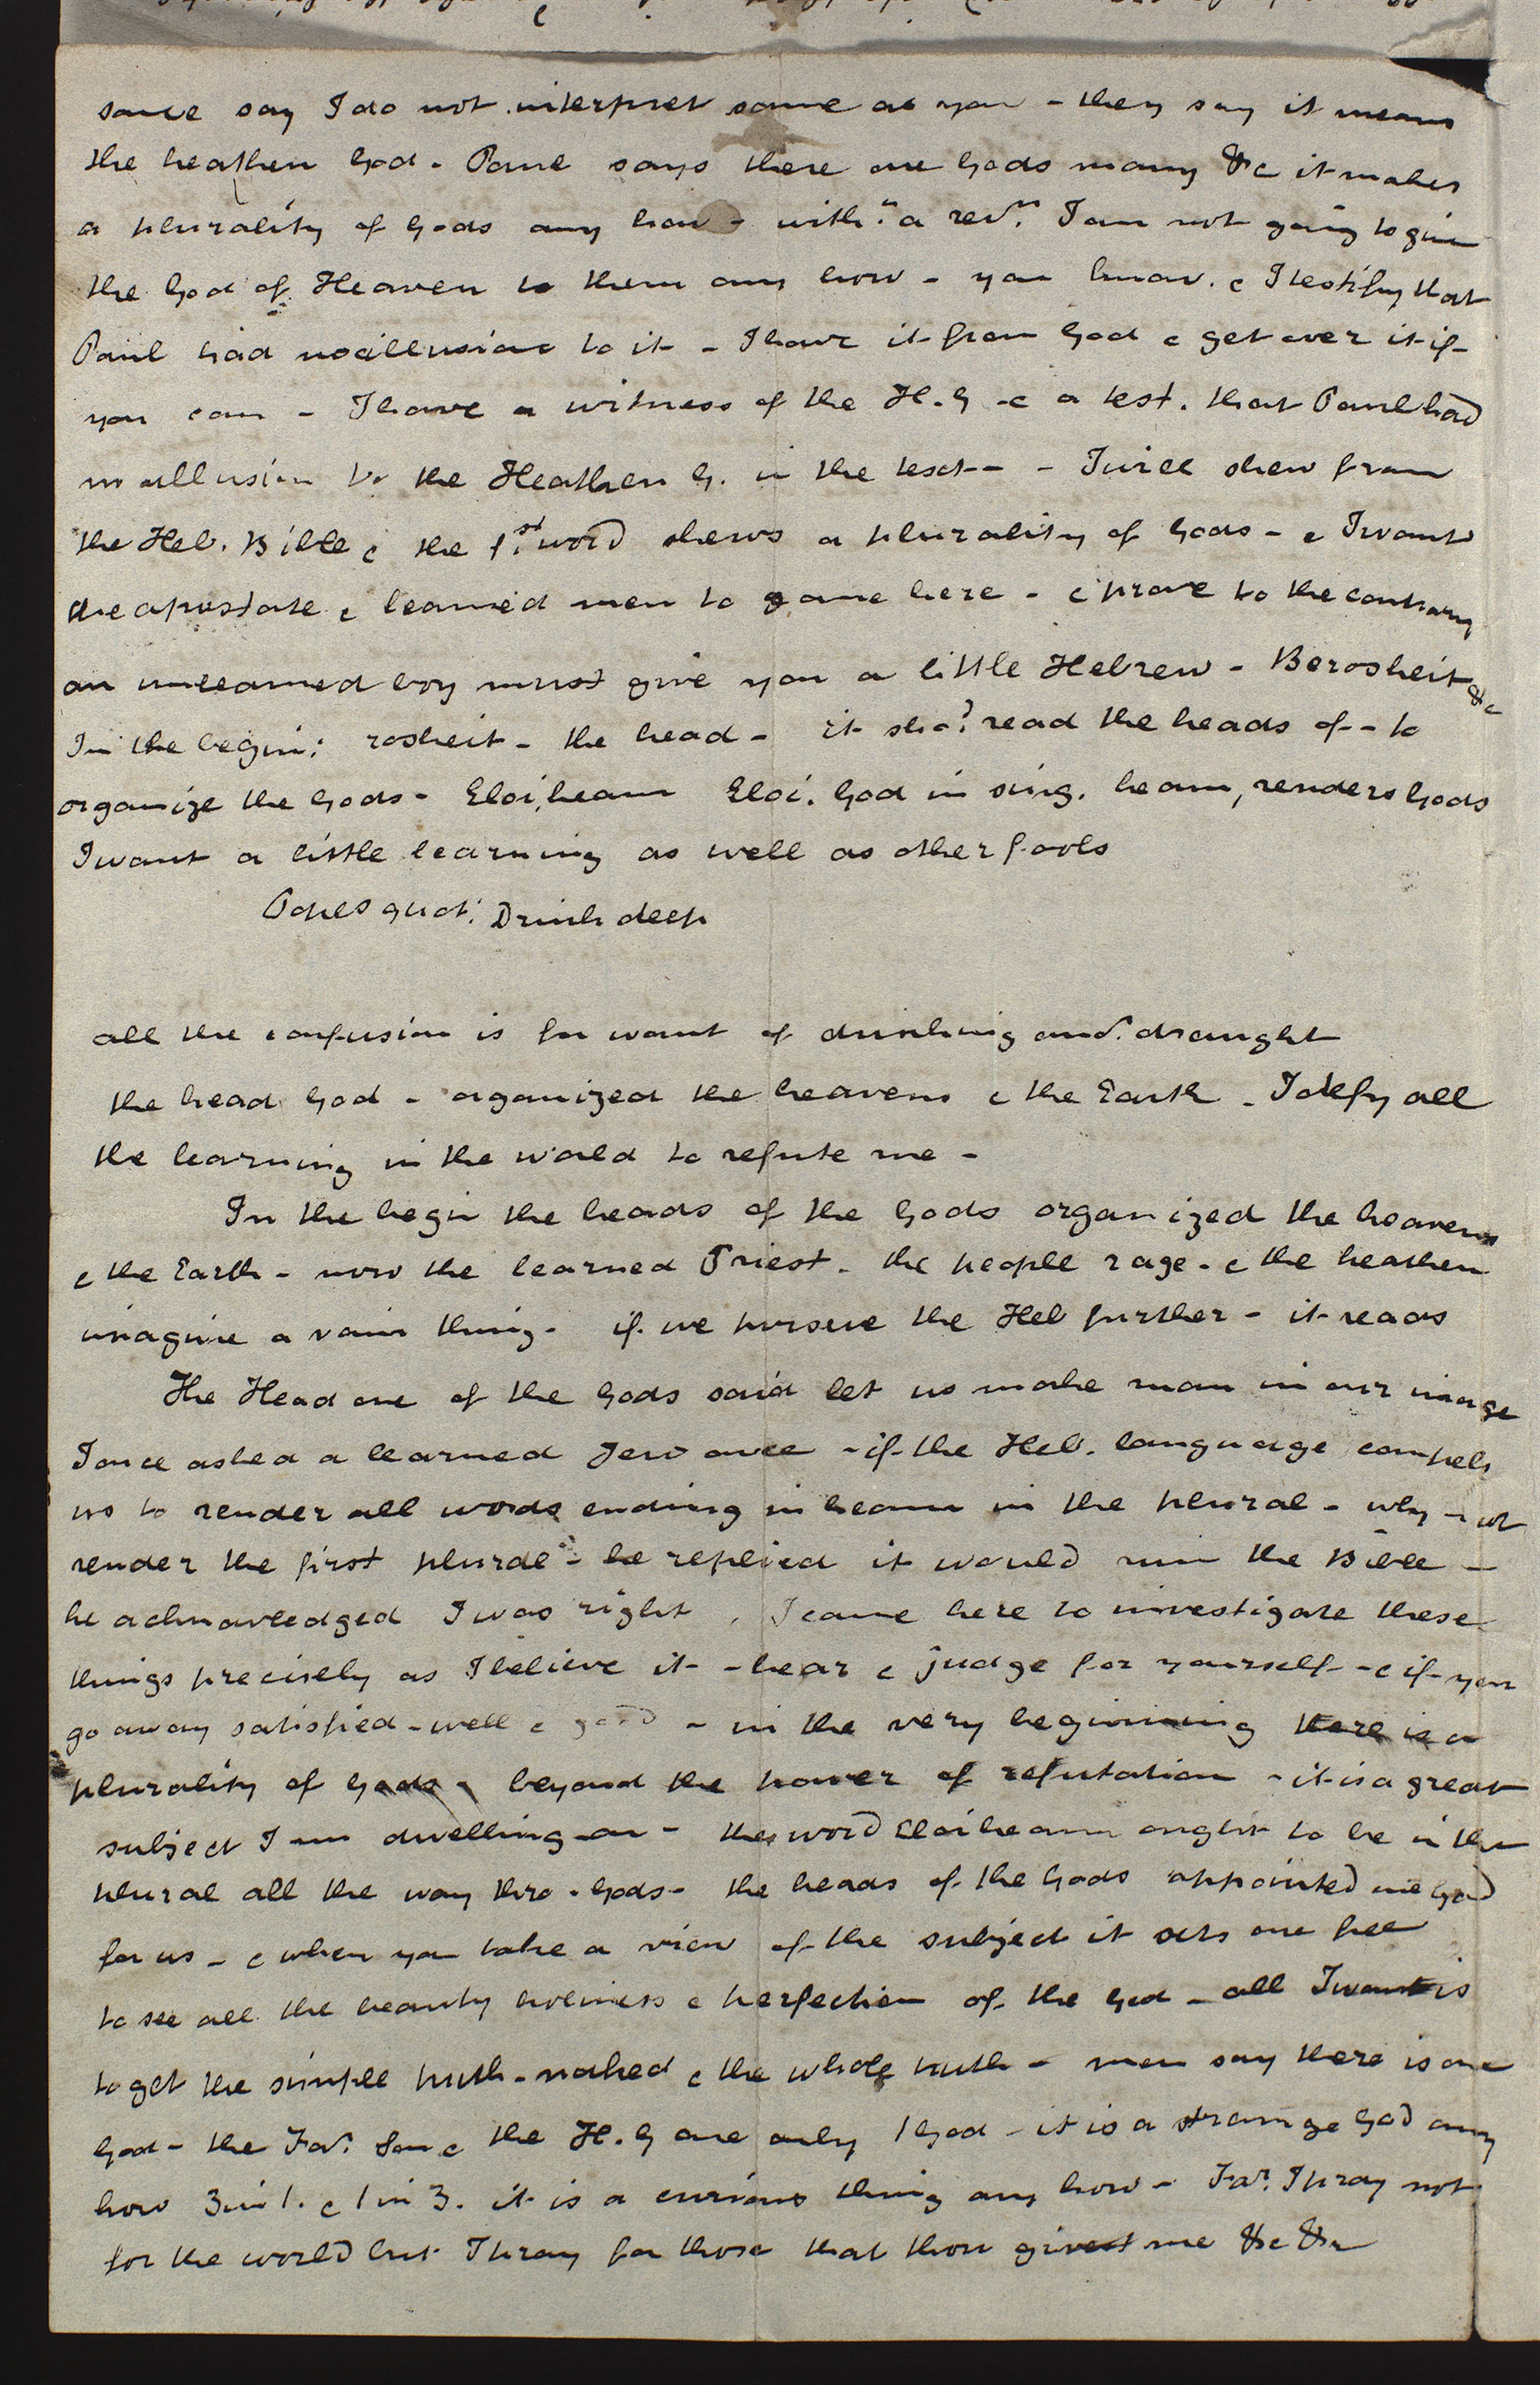 some say I do not interpret same as you - they say it means
the heathen God - Paul says there are Gods many &c it makes
a plurality of Gods any how - witht. a revn. I am not going to give
the God of Heaven to them any how - you know & I testify that
Paul had no allusions to it - I have it from God & get over it if
you can - I have a witness of the H. G - & a test. that Paul had
no allusion to the Heathen G. in the text - - I will shew from
the Heb. Bible & the 1st. word shews a plurality of Gods - & I want
the apostate & learned men to come here - & prove to the contrary
an unlearned boy must give you a little Hebrew - Berosheit &c
In the begin: rosheit - the head - it shod. read the heads of - to
organize the Gods - Eloiheam Eloi. God in sing. heam, renders Gods
I want a little learning as well as other fools
Popes quot: Drink deep
all the confusion is for want of drinking and. draught
the head God - organized the heavens & the Earth - I defy all
the learning in the world to refute me -
In the begin the heads of the Gods organized the heavens
& the Earth - now the learned Priest - the people rage - & the heathen
imagine a vain thing - if we pursue the Heb further - it reads
The Head one of the Gods said let us make man in our image
I once asked a learned Jew once - if the Heb. language compels
us to render all words ending in heam in the plural - why not
render the first plural - he replied it would ruin the Bible -
he acknowledged I was right. I came here to investigate these
things precisely as I believe it - hear & judge for yourself - & if you
go away satisfied - well & good - in the very beginning there is a
plurality of Gods - beyond the power of refutation - it is a great
subject I am dwelling on - the word Eloiheam ought to be in the
plural all the way thro - Gods - the heads of the Gods appointed one God
for us - & when you take a view of the subject it sets one free
to see all the beauty holiness & perfection of the God - all I want is
to get the simple truth - naked & the whole truth - men say there is one
God - the Far. Son & the H. G are only 1 God - it is a strange God any
how 3 in 1. & 1 in 3. it is a curious thing any how - Far. I pray not
for the world but I pray for those that thou givest me &c &c